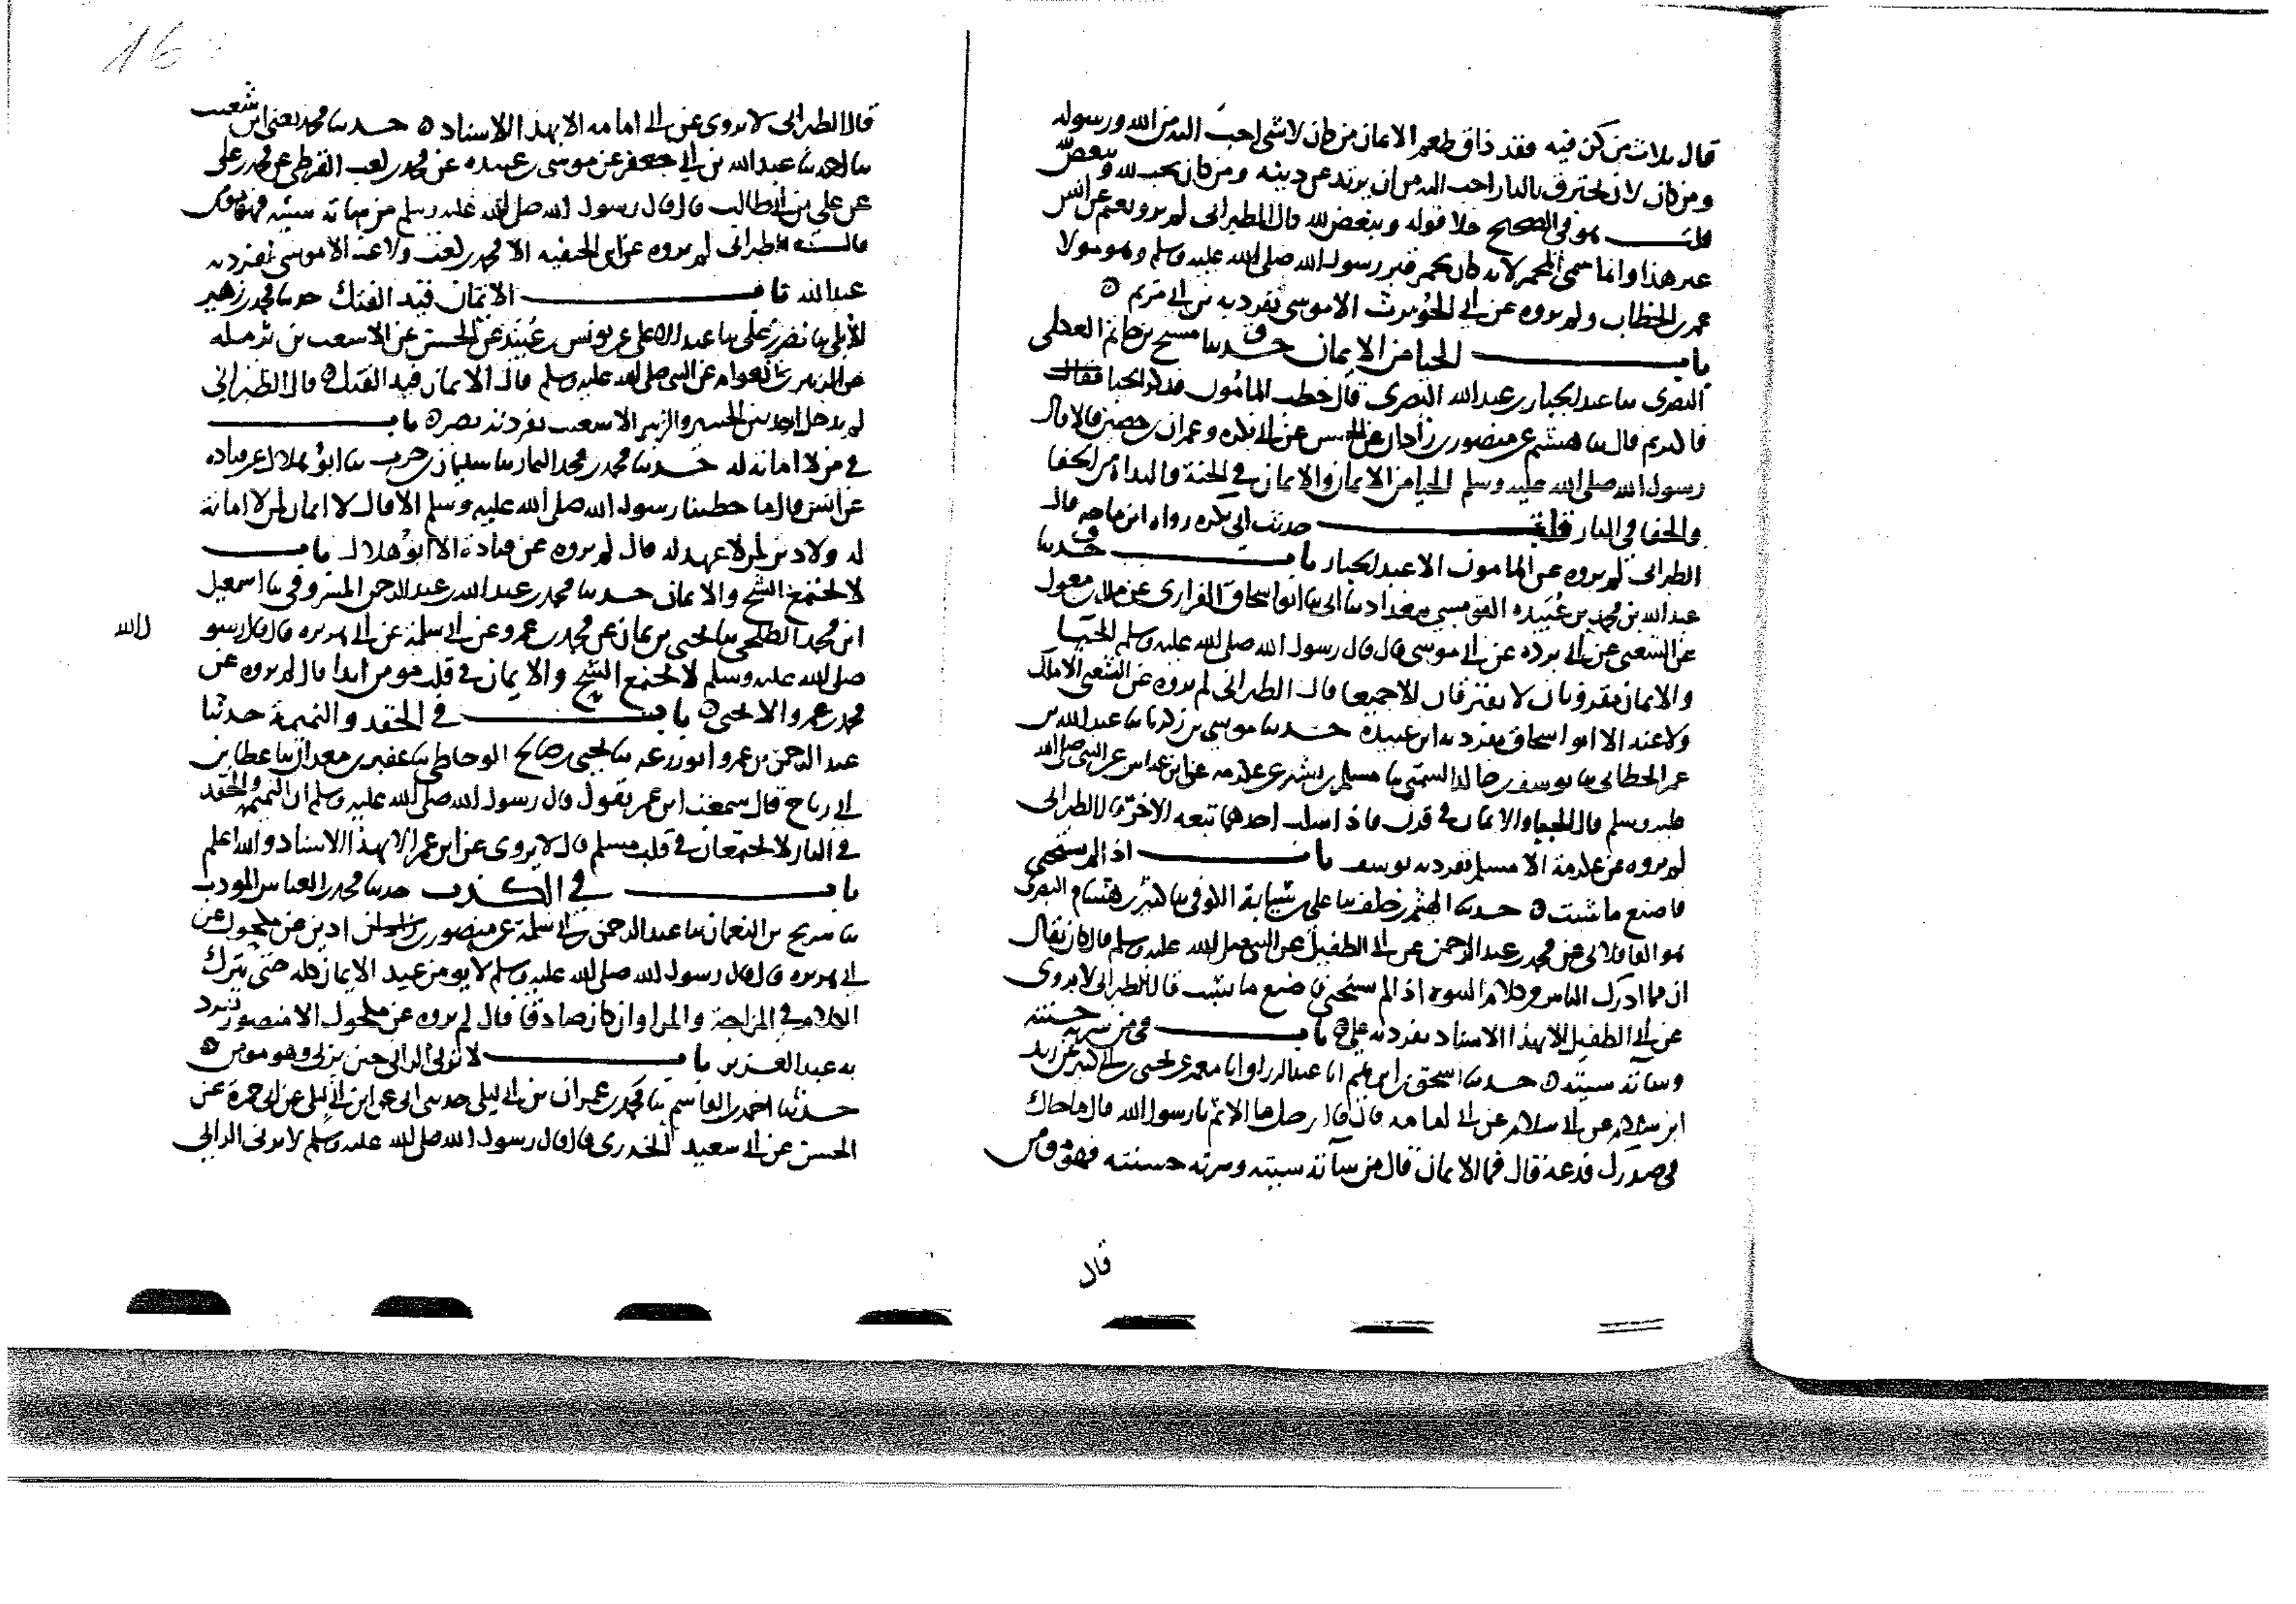 قال ثلاث من كن فيه فقد ذاق طعم الايمان من كان لا شي احب اليه من الله ورسوله
ومن كان لان يحترق بالنار احب اليه من ان يرتد عن دينه ومن كان يحب لله ويبغض لله
قلت هو في الصحيح خلا قوله ويبغض لله قال الطبراني لم يرو نعيم عن انس
غير هذا وانما سمي المجمر لانه كان يجمر قبر رسول الله صلى الله عليه وسلم وهو مولا
عمر بن الخطاب ولم يروه عن ابي الحويرث الا موسى تفرد به بن ابي مريم
باب الحيا من الايمان حدثنا مسيح بن حاتم العكلي
البصرى ثنا عبد الجبار بن عبد الله البصرى قال خطب المأمون فذكر الحيا فقال
ثنا هشيم عن منصور بن زاذان عن الحسن عن ابي بكره وعمران بن حصين قالا قال
رسول الله صلى الله عليه وسلم الحيا من الايمان والايمان في الجنة والبذاء من الجفا
والجفا في النار قلت حديث ابي بكره رواه ابن ماجه قال
الطبراني لم يروه عن المامون الا عبد الجبار باب حدثنا
عبد الله بن محمد بن عبيده القومسي ببغداد ثنا ابي ثنا ابو اسحاق الفزارى عن مالك بن مغول
عن الشعبي عن ابي برده عن ابي موسى قال قال رسول الله صلى الله عليه وسلم الحيا
والايمان مقرونان لا يفترقان الا جميعا قال الطبراني لم يروه عن الشعبي الا مالك
ولا عنه الا ابو اسحاق تفرد به ابن عبيدة حدثنا موسى بن زكريا ثنا عبد الله بن
عمر الخطابي ثنا يوسف بن خالد السمتي ثنا مسلم بن بشر عن عكرمه عن ابن عباس عن النبي صلى الله
عليه وسلم قال الحيا والايمان في قرن فاذا سلب احدهما تبعه الاخر قال الطبراني
لم يروه عن عكرمة الا مسلم تفرد به يوسف باب اذا لم تستحي
فاصنع ما شئت حدثنا الهيثم بن خلف ثنا علي بن شيابة الكوفي ثنا بشر بن هشام البصرى
عن محمد بن عبد الرحمن عن ابي الطفيل عن النبي صلى الله عليه وسلم قال كان يقال
ان مما ادرك الناس من كلام النبوه اذا لم تستحي فاصنع ما شئت قال الطبراني لا يروى
عن ابي الطفيل الا بهذا الاسناد تفرد به علي باب في من سرته حسنته
وسائته سيئته حدثنا اسحق بن ابرهيم انا عبد الرزاق انا معمر عن يحيى بن ابي كثير عن زيد
ابن سلام عن ابي سلام عن ابي امامه قال قال رجل ما الاثم يا رسول الله قال ما حاك
في صدرك فدعه قال فما الايمان قال من سائته سيئته وسرته حسنته فهو مومن
قال
قال الطبراني لا يروى عن ابي امامه الا بهذا الاسناد حدثنا محمد يعني ابن شعيب
ثنا عبد الله بن ابي جعفر عن موسى بن عبيده عن محمد بن كعب القرظي عن محمد بن علي
عن علي بن ابي طالب قال قال رسول الله صلى الله عليه وسلم من ساته سيئته فهو مومن
قال الطبراني لم يروه عن ابن الحنفيه الا محمد بن كعب ولا عنه الا موسى تفرد به
عبد الله باب الايمان قيد الفتك حدثنا محمد بن زهير
الابلي ثنا نصر بن علي ثنا عبد الاعلى عن يونس بن عبيد عن الحسن عن الاسعب بن ثرمله
عن الزبير بن العوام عن النبي صلى الله عليه وسلم قال الايمان قيد الفتك قال الطبراني
لم يدخل احد بين الحسن والزبير الاسعب تفرد به نصر باب
في من لا امانة له حدثنا محمد بن محمد التمار ثنا سليمان بن حرب ثنا ابو هلال عن قتاده
عن انس قال ما خطبنا رسول الله صلى الله عليه وسلم الا قال لا ايمان لمن لا امانة
له ولا دين لمن لا عهد له قال لم يروه عن قتادة الا ابو هلال باب
لا يجتمع الشح والايمان حدثنا محمد بن عبد الله بن عبد الرحمن المسروقي ثنا اسمعيل
ابن محمد الطلحي ثنا يحيى بن يمان عن محمد بن عمرو عن ابي سلمة عن ابي هريره قال قال رسو
ل الله
صلى الله عليه وسلم لا يجتمع الشح والايمان في قلب مومن ابدا قال لم يروه عن
محمد بن عمرو الا يحيى باب في الحقد والنميمة حدثنا
عبد الرحمن بن عمرو ابو زرعه ثنا يحيى بن صالح الوحاظي ثنا عفير بن معدان ثنا عطا بن
ابي رباح قال سمعت ابن عمر يقول قال رسول الله صلى الله عليه وسلم ان النميمة والحقد
في النار لا يجتمعان في قلب مسلم قال لا يروى عن ابن عمر الا بهذا الاسناد والله اعلم
باب في الكذب حدثنا محمد بن العباس المودب
ثنا سريج بن النعمان ثنا عبد العزيز بن ابي سلمة عن منصور بن اذين عن مكحول عن
ابي هريره قال قال رسول الله صلى الله عليه وسلم لا يومن عبد الايمان كله حتى يترك
الكذب في المزاحة والمرا وان كان صادقا قال لم يروه عن مكحول الا منصور تفرد
به عبد العزيز باب لا يزني الزاني حين يزني وهو مومن
حدثنا احمد بن القاسم ثنا محمد بن عمران بن ابي ليلى حدثني ابي عن ابن ابي ليلى عن ابي حمزة عن
الحسن عن ابي سعيد الخدري قال قال رسول الله صلى الله عليه وسلم لا يزني الزاني
16